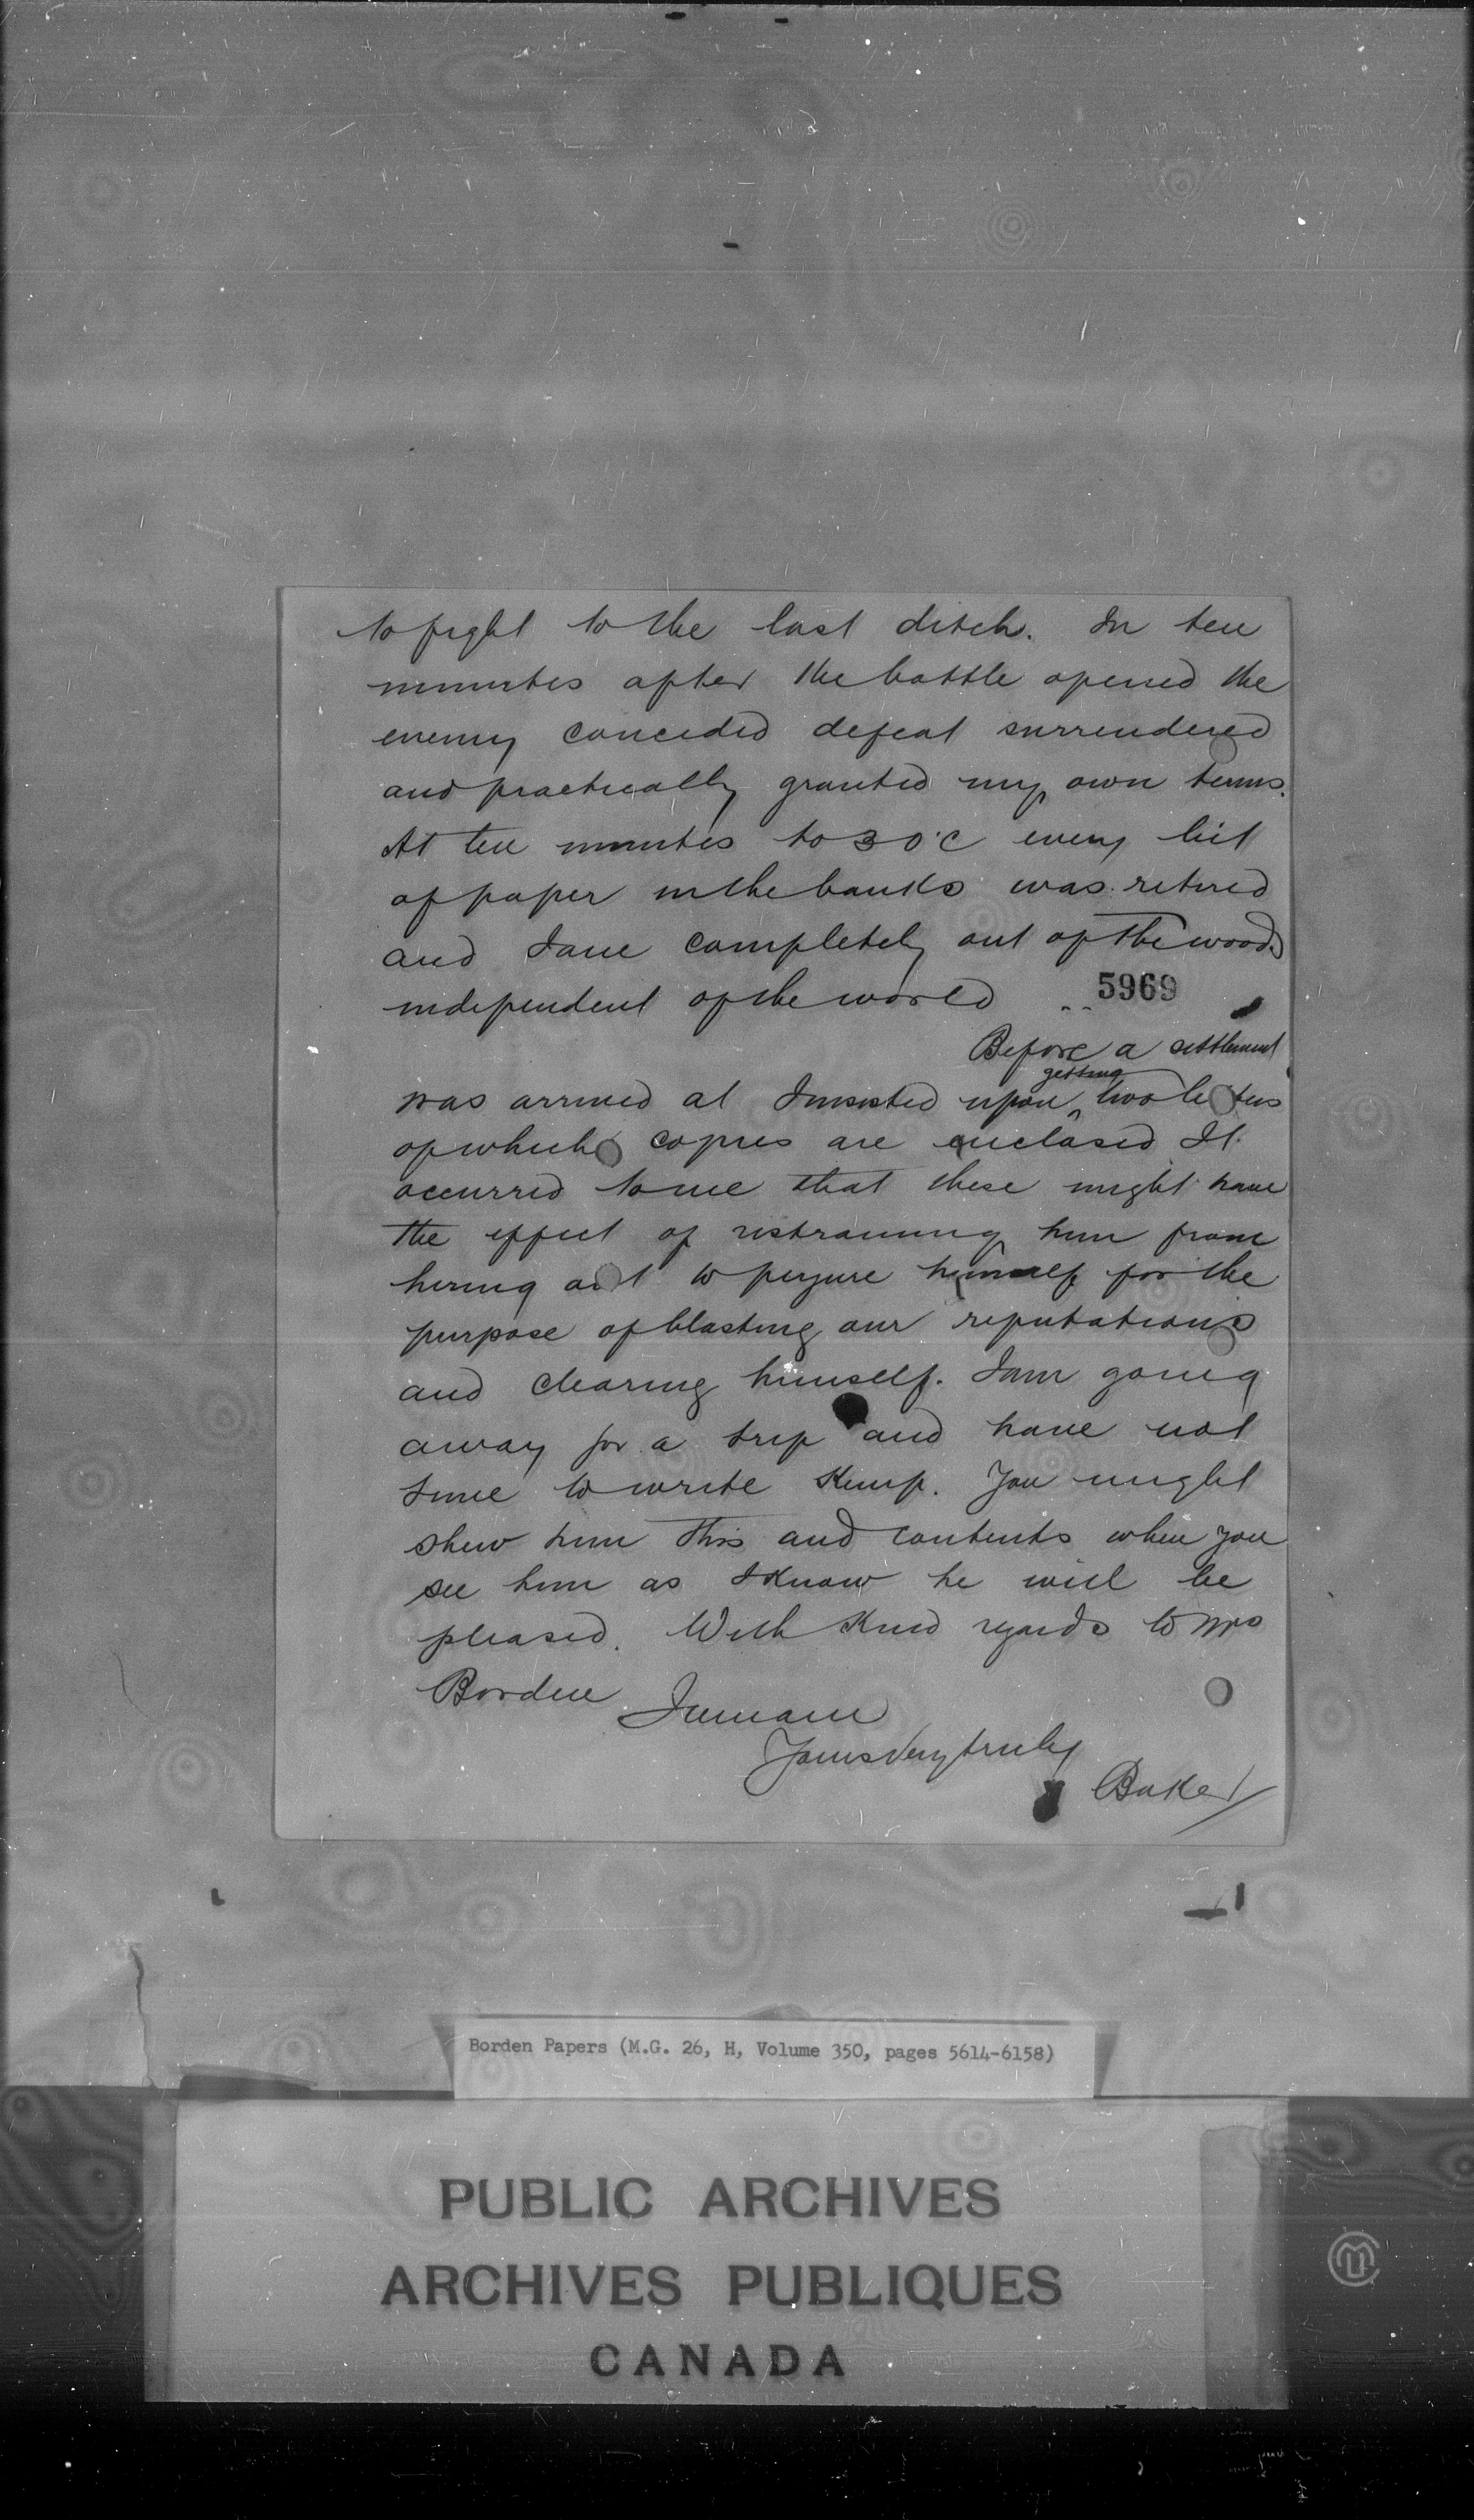 to fight to the last ditch. In ten
minutes after the battle opened the
enemy conceded defeat surrendered
and practically granted my own terms.
At ten minutes to 3 O'C every bit
of paper in the banks was retired
and I am completely out of the woods
independent of the world
5969
Before a settlement
was arrived at I insisted upon getting two letters
of which copies are enclosed It
occurred to me that these might have
the effect of restraining him from
hiring out to perjure himself for the
purpose of blasting our reputations
and clearing himself. I am going
away for a trip and have not
time to write Kemp. You might
shew him this and contents when you
see him as I know he will be
pleased. With kind regards to Mrs
Borden I remain
Yours very truly
Baker
Borden Papers (M.G. 26, H, Volume 350, pages 5614-6158)
PUBLIC ARCHIVES
ARCHIVES PUBLIQUES
CANADA